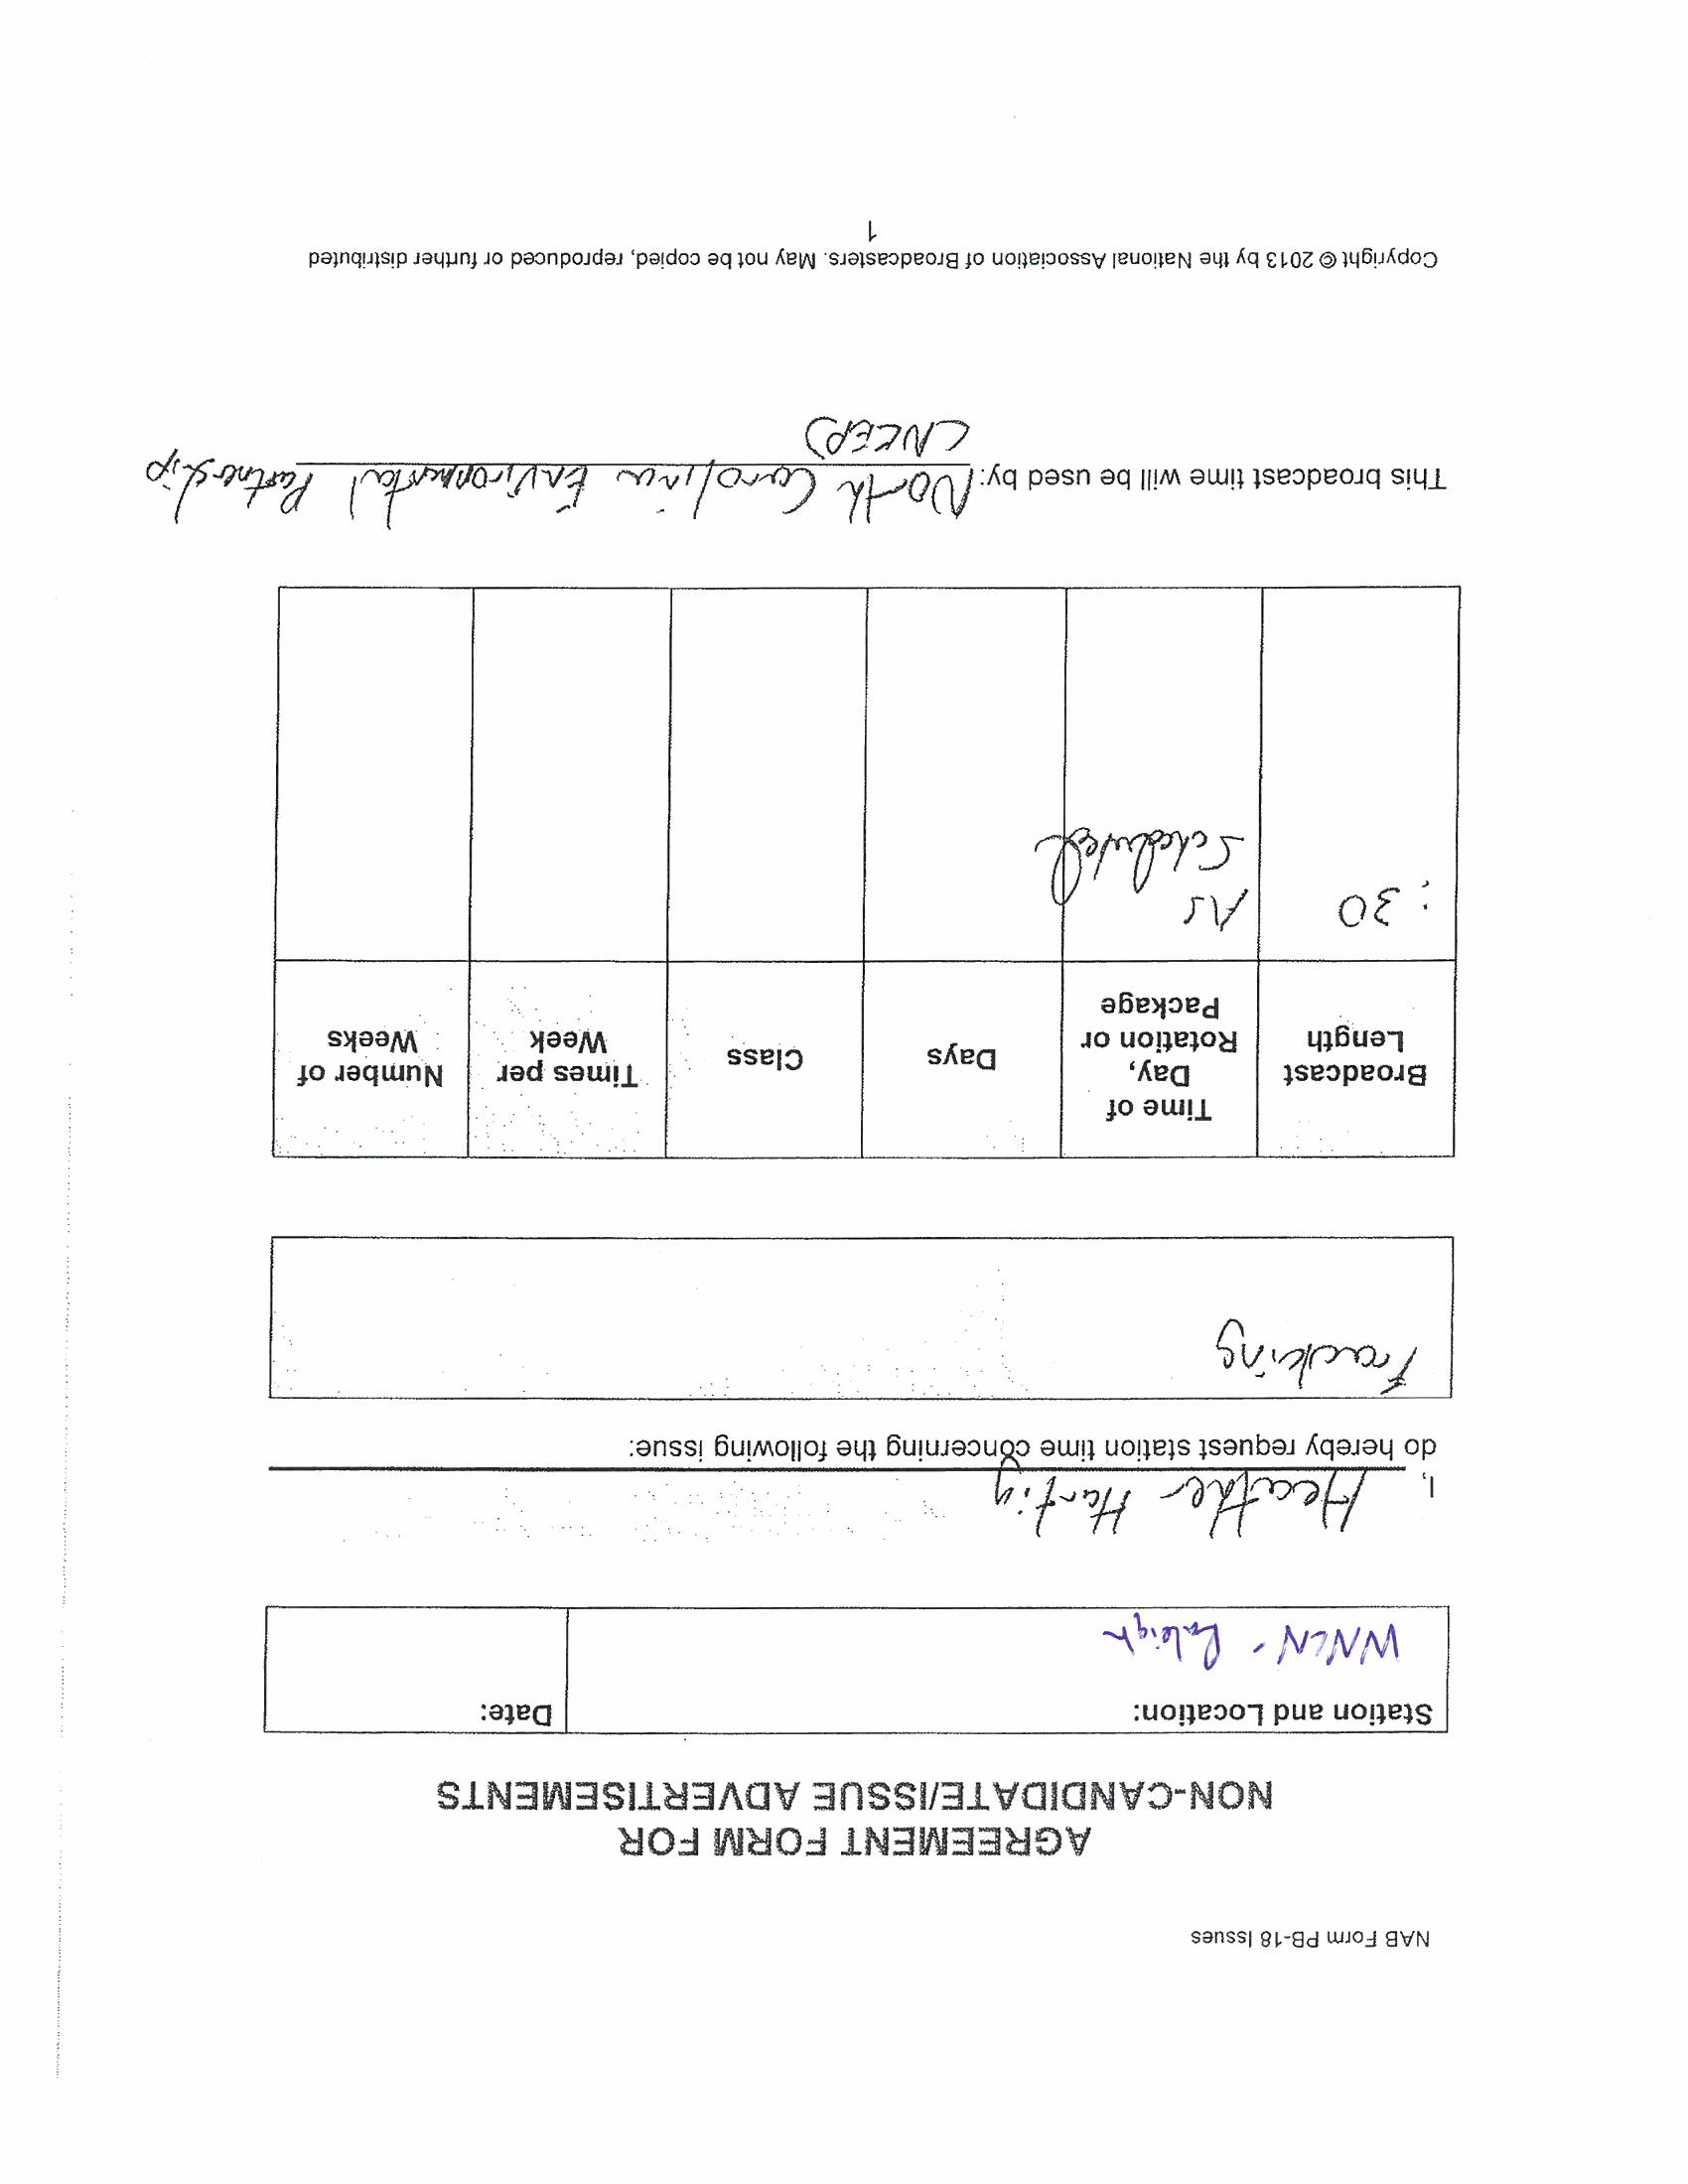 NAB Form PB-18 Issues
AGREEMENT FORM FOR
NON-CANDIDATE/ISSUE ADVERTISEMENTS
Station and Location:
WNCN - Raleigh
Date:
I, Heather Hartig
do hereby request station time concerning the following issue:
Fracking
Broadcast
Length
Time of
Day,
Rotation or
Package
Days
Class
Times per
Week
Number of
Weeks
:30
As
Scheduled
This broadcast time will be used by: North Carolina Environmental Partnership
(NCEP)
Copyright © 2013 by the National Association of Broadcasters. May not be copied, reproduced or further distributed
1